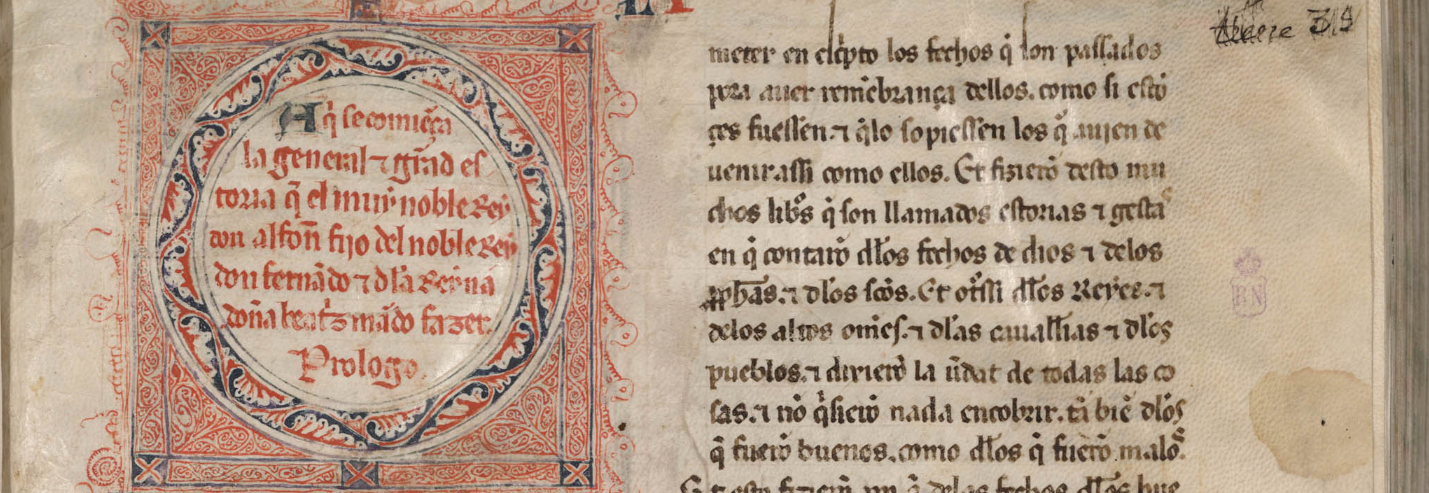 Aq̓ se comiẽça
la general ⁊ grãd es
toria q̃ el muy noble Rey
don alfon̄ fijo del noble Rey
don fernãdo ⁊ d̃la Reyna
doña beat̃z mãdo fazer.
Prologo.
meter en esc̓pto los fechos q̃ son passados
pora auer remẽbrança dellos. como si estõ
çes fuessen. ⁊ q̃lo sopiessen los q̃ auien de
uenir assi como ellos. Et fizierõ desto mu
chos libr̃s q̃ son llamados estorias ⁊ gestas
en q̃ contarõ d̃los fechos de dios ⁊ delos
ꝓph̃as. ⁊ d̃los sc̃os. Et ot̃ssi d̃los Reyes. ⁊
delos altos om̃es. ⁊ d̃las cauall̃ias ⁊ d̃los
pueblos. ⁊ dixierõ la ũdat de todas las co
sas. ⁊ nõ q̃sierõ nada encobrir. tã biẽ d̃los
q̃ fuerõ buenos. como d̃los q̃ fuerõ malos.
Et esto fizierõ
BN